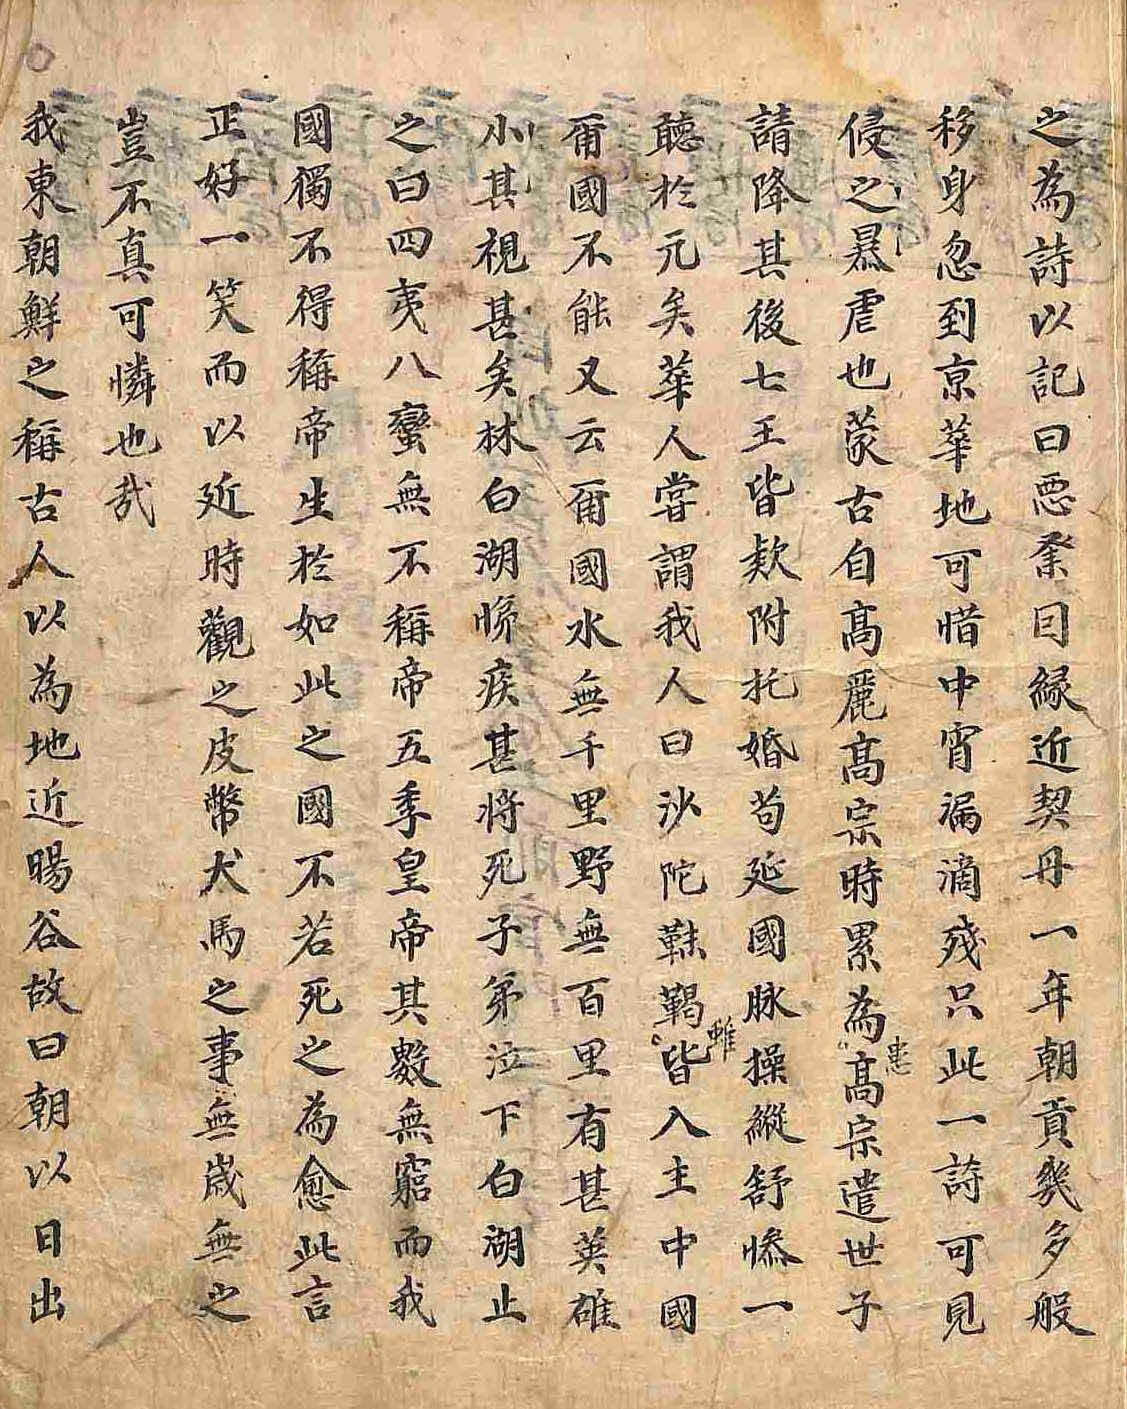 之為詩以記曰惡業因緣近契丹一年朝貢幾多般
移身忽到京華地可惜中宵漏滴殘只此一詩可見
侵之暴虐也蒙古自高麗高宗時累為患高宗遣世子
請降其後七王皆欵附托婚苟延國脉操縱舒慘一
聽於元矣華人嘗謂我人曰沙陀靺鞨雖皆入主中國
爾國不能又云爾國水無千里野無百里有甚英雄
小其視甚矣林白湖悌疾甚將死子弟泣下白湖止
之曰四夷八蠻無不稱帝五季皇帝其數無窮而我
國獨不得稱帝生於如此之國不若死之為愈此言
正好一笑而以近時觀之皮幣犬馬之事無歲無之
豈不真可憐也哉
我東朝鮮之稱古人以為地近暘谷故曰朝以日出